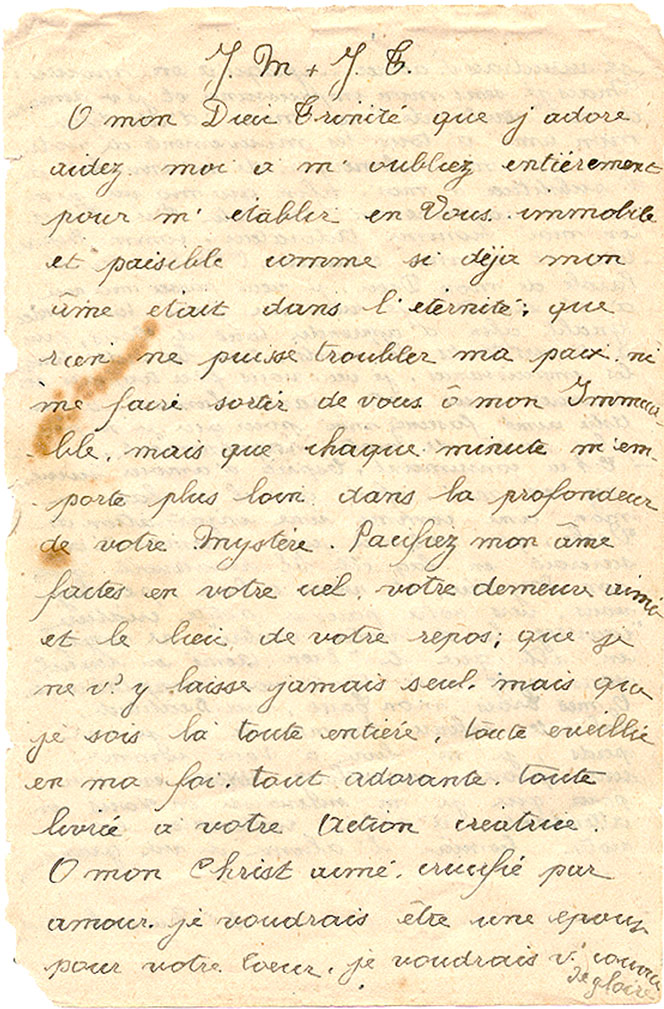 J. M + J. T.
O mon Dieu Trinité que j adore
aidez moi a m' oubliez entiérement
pour m' etablir en Vous. immobile
et paisible comme si déja mon
âme etait dans l' eternité; que
rien ne puisse troubler ma paix. ni
me faire sortir de vous ô mon Immua-
ble. mais que chaque minute m'em-
porte plus loin dans la profondeur
de votre Mystère. Pacifiez mon âme
faites en votre ciel. votre demeure aimée
et le lieu de votre repos; que je
ne v.s y laisse jamais seul. mais que
je sois là toute entiére, toute eveillée
en ma foi. tout adorante. toute
livrée a votre Action creatrice.
O mon Christ aimé. crucifié par
amour. je voudrais être une epouse
pour votre Coeur. je voudrais v. couvrir
de gloire